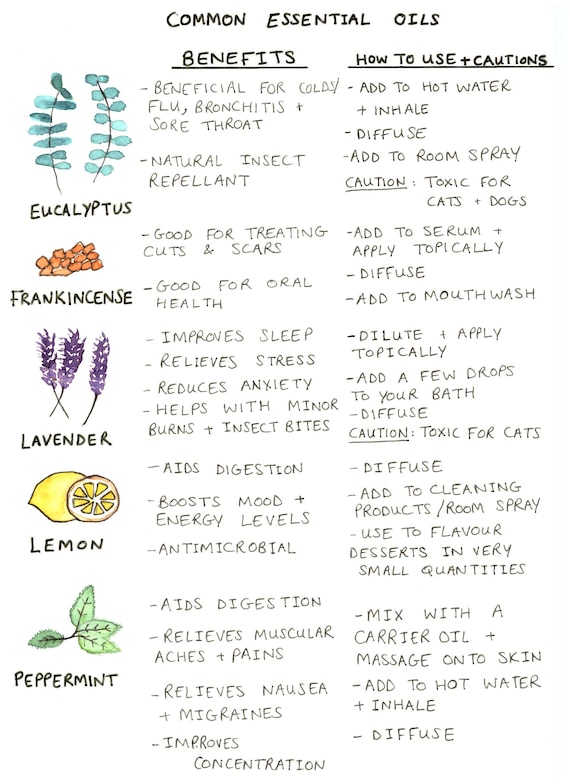 COMMON ESSENTIAL OILS
BENEFITS
HOW TO USE + CAUTIONS
EUCALYPTUS
- BENEFICIAL FOR COLDS/
FLU, BRONCHITIS +
SORE THROAT
- NATURAL INSECT
REPELLANT
- ADD TO HOT WATER
+ INHALE
- DIFFUSE
- ADD TO ROOM SPRAY
CAUTION : TOXIC FOR
CATS + DOGS
FRANKINCENSE
- GOOD FOR TREATING
CUTS & SCARS
- GOOD FOR ORAL
HEALTH
- ADD TO SERUM +
APPLY TOPICALLY
- DIFFUSE
- ADD TO MOUTHWASH
LAVENDER
- IMPROVES SLEEP
- RELIEVES STRESS
- REDUCES ANXIETY
- HELPS WITH MINOR
BURNS + INSECT BITES
- DILUTE + APPLY
TOPICALLY
- ADD A FEW DROPS
TO YOUR BATH
- DIFFUSE
CAUTION : TOXIC FOR CATS
LEMON
- AIDS DIGESTION
- BOOSTS MOOD +
ENERGY LEVELS
- ANTIMICROBIAL
- DIFFUSE
- ADD TO CLEANING
PRODUCTS/ROOM SPRAY
- USE TO FLAVOUR
DESSERTS IN VERY
SMALL QUANTITIES
PEPPERMINT
- AIDS DIGESTION
- RELIEVES MUSCULAR
ACHES + PAINS
- RELIEVES NAUSEA
+ MIGRAINES
- IMPROVES
CONCENTRATION
- MIX WITH A
CARRIER OIL +
MASSAGE ONTO SKIN
- ADD TO HOT WATER
+ INHALE
- DIFFUSE